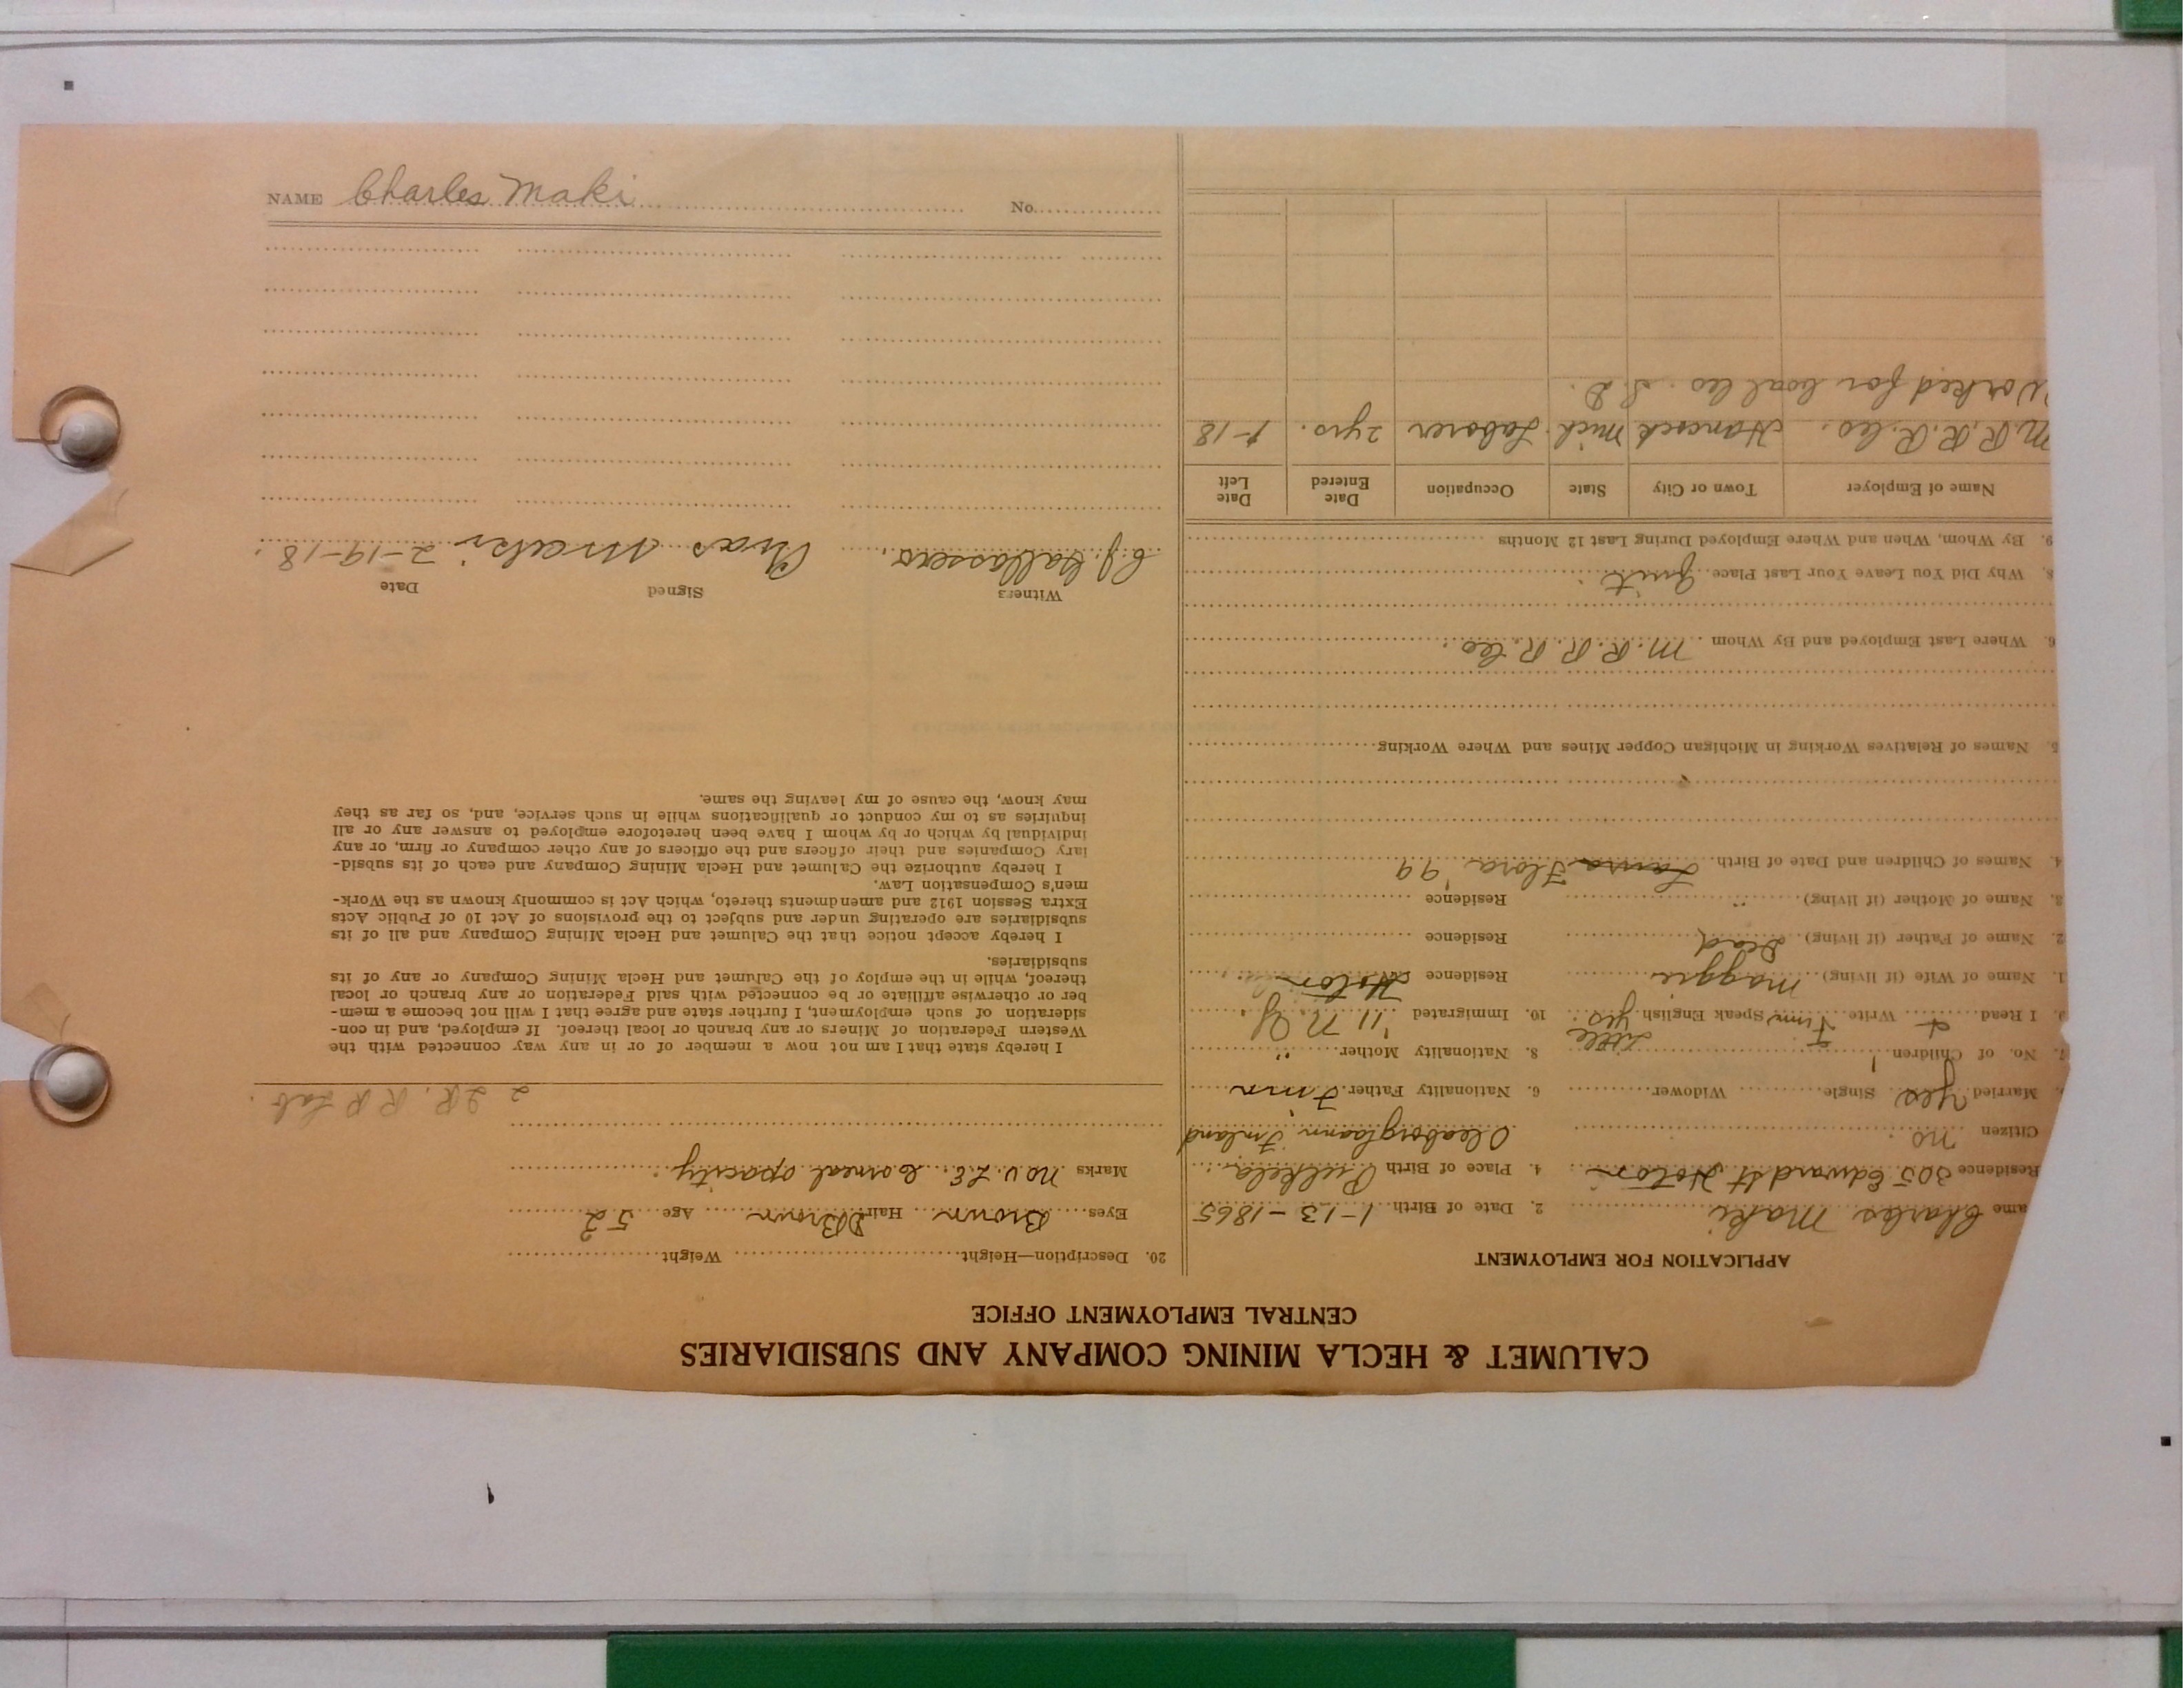 CALUMET & HECLA MINING COMPANY AND SUBSIDIARIES
CENTRAL EMPLOYMENT OFFICE
APPLICATION FOR EMPLOYMENT
ame Charles Maki 2. Date of Birth 1-13-1865
Residence 305 Edward St Hoton 4. Place of Birth
Citizen no Finland
Married yes Single Widower 6. Nationality Father Finn
7. No. of Children 1 8. Nationality Mother "
9. I Read + Write Finn Speak English little yes 10. Immigrated '11 N.Y.
1. Name of Wife (if living) Maggie Residence Hoton
2. Name of Father (if living) Dead Residence
3. Name of Mother (if living) " Residence
4. Names of Children and Date of Birth Flora '99
5. Names of Relatives Working in Michigan Copper Mines and Where Working
6. Where Last Employed and By Whom M. R. R. R. Co.
8. Why Did You Leave Your Last Place Quit
9. By Whom, When and Where Employed During Last 12 Months
Name of Employer Town or City State Occupation Date Entered Date Left
M. R. R. R. Co. Hancock Mich. Laborer 2 yrs. 1-18
Worked for Coal Co. S.D.
20. Description—Height Weight
Eyes Brown Hair D Brown Age 52
Marks No V. L.E. Corneal opacity
2 R. R. Lab.
I hereby state that I am not now a member of or in any way connected with the
Western Federation of Miners or any branch or local thereof. If employed, and in con-
sideration of such employment, I further state and agree that I will not become a mem-
ber or otherwise affiliate or be connected with said Federation or any branch or local
thereof, while in the employ of the Calumet and Hecla Mining Company or any of its
subsidiaries.
I hereby accept notice that the Calumet and Hecla Mining Company and all of its
subsidiaries are operating under and subject to the provisions of Act 10 of Public Acts
Extra Session 1912 and amendments thereto, which Act is commonly known as the Work-
men's Compensation Law.
I hereby authorize the Calumet and Hecla Mining Company and each of its subsid-
iary Companies and their officers and the officers of any other company or firm, or any
individual by which or by whom I have been heretofore employed to answer any or all
inquiries as to my conduct or qualifications while in such service, and, so far as they
may know, the cause of my leaving the same.
Witness Signed Date
C. J. Chas Maki 2-19-18.
NAME Charles Maki No.